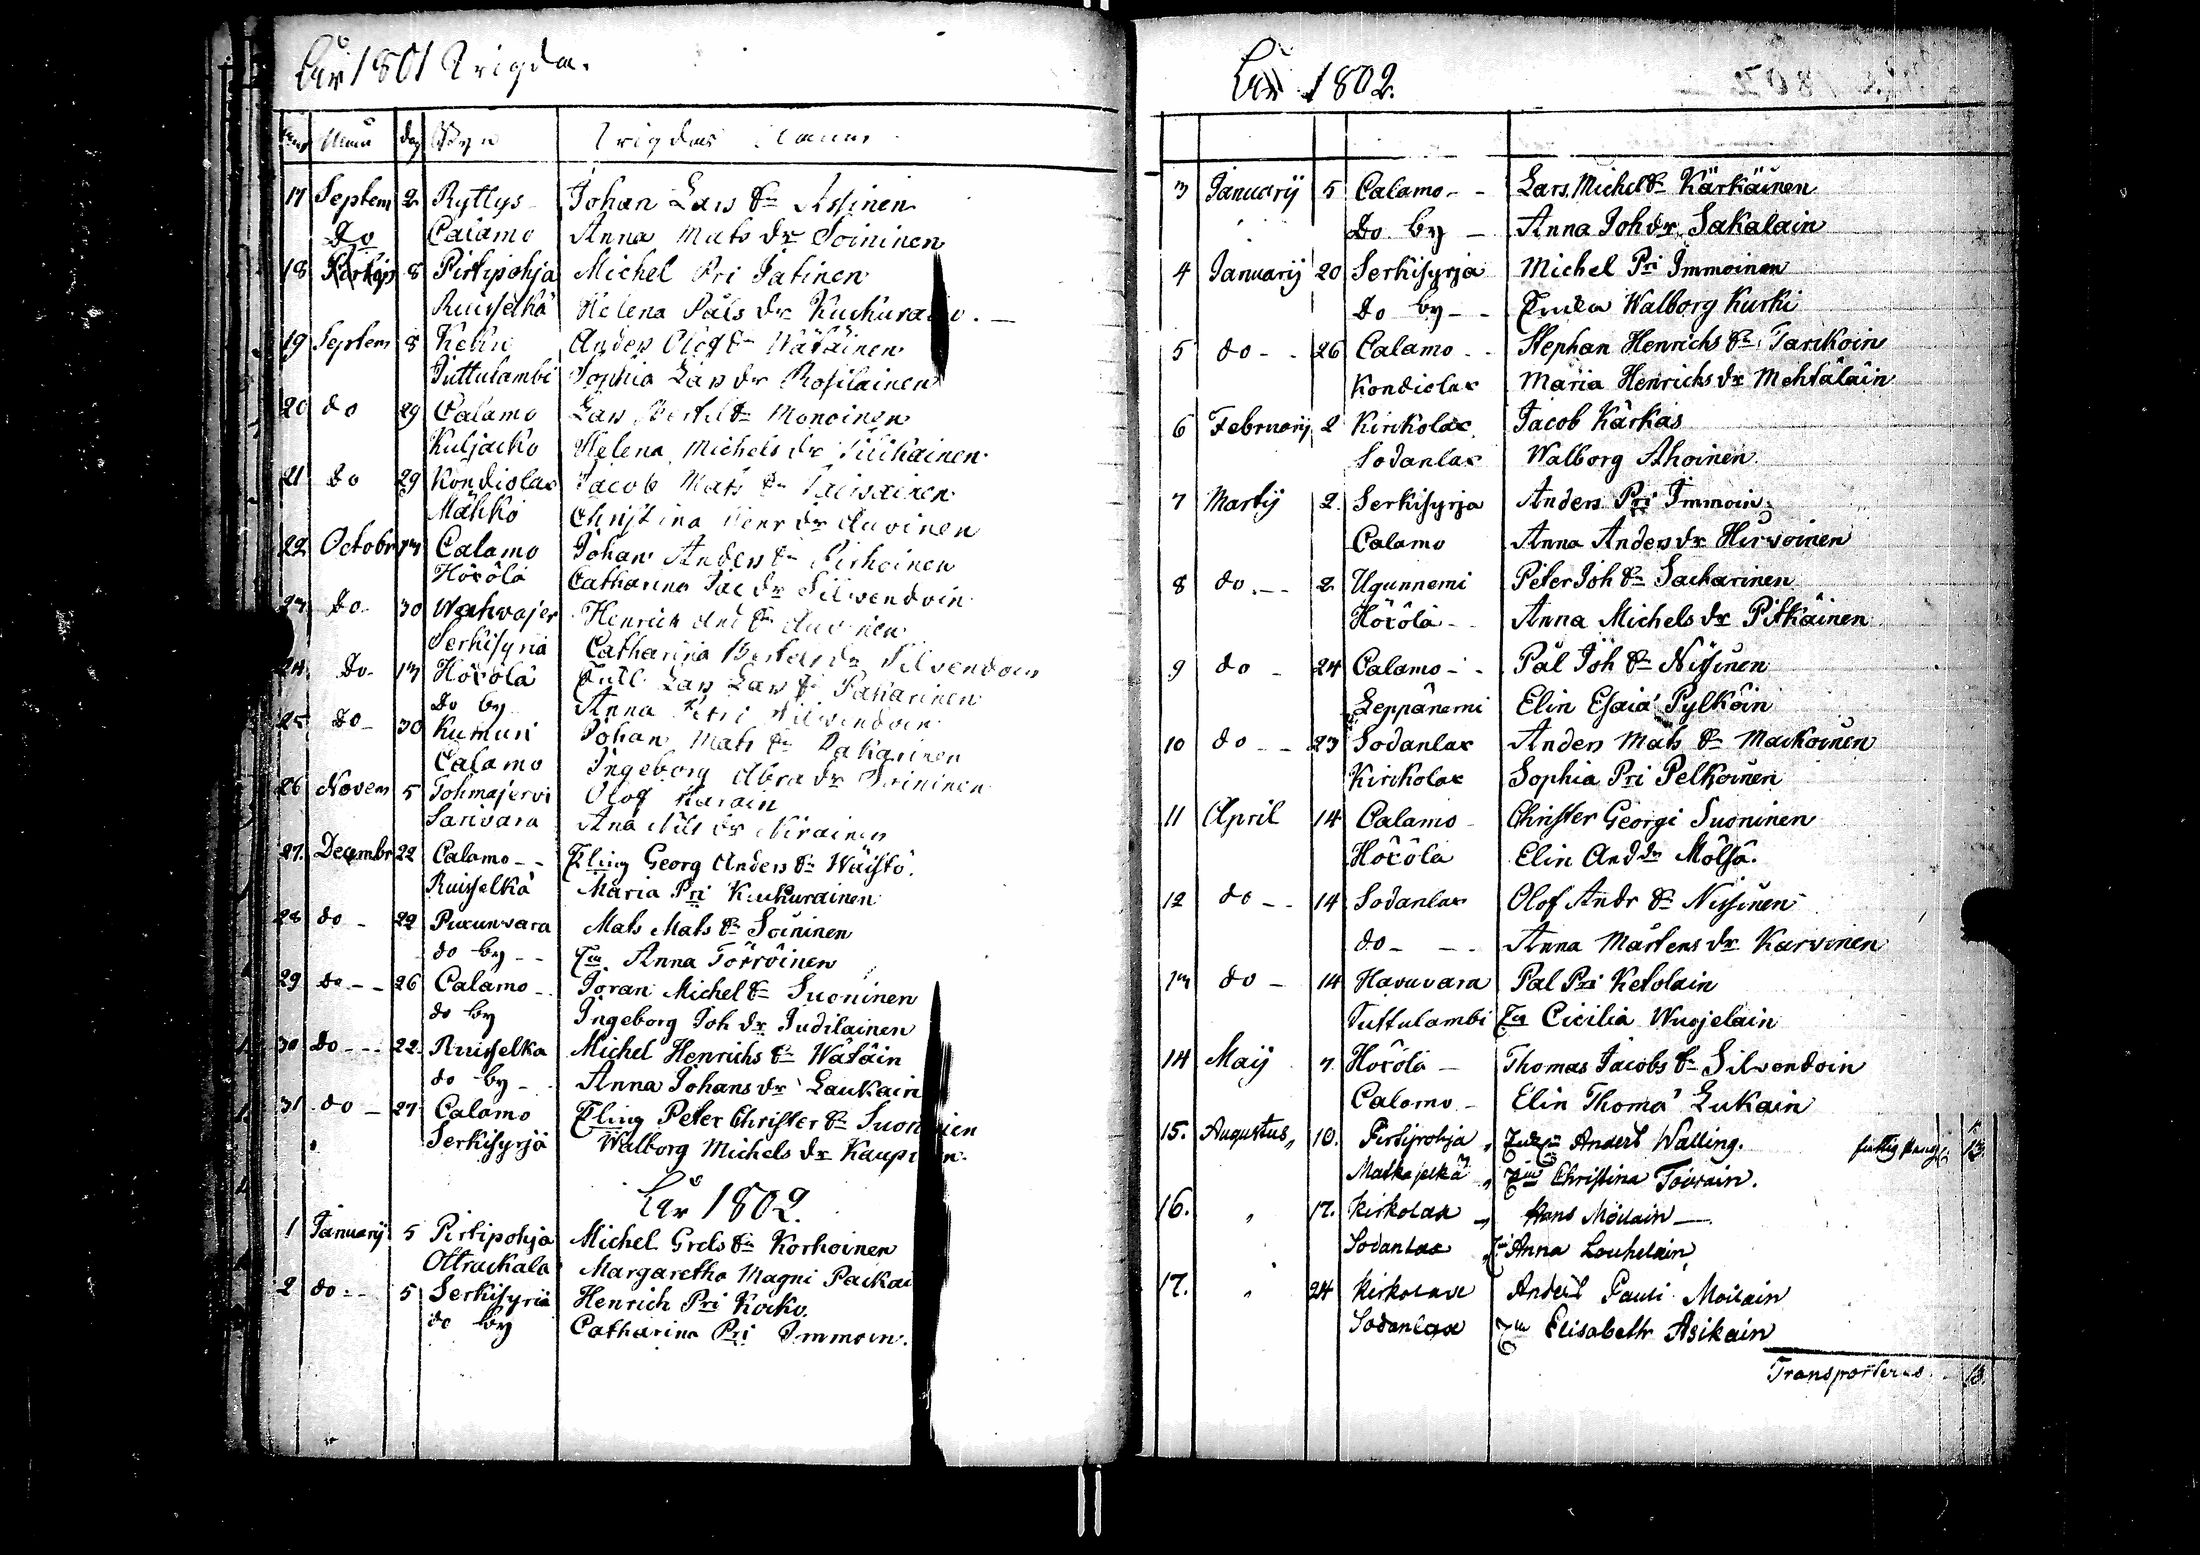 År 1801 Wigda.
Månad dag Byn Wigdas Namn
17 Septem 2 Ryttys Johan Lars Sn Assinen
Do Calamo Anna Mats dr Soininen
18 8 Pirtipohja Michel Pri Jatinen
Ruisselkä Helena Påls dr
19 Septem 8 Anders Olofs Sn Wätäinen
Juttulambi Sophia Lars dr Rosilainen
20 do 29 Calamo Lars Bertels Sn Monoinen
Kuljacko Helena Michels dr
21 do 29 Kondiolax Jacob Mats Sn
Mähkö Christina Henr dr Auvinen
22 Octobr 13 Calamo Johan Anders Sn Pirhoinen
Höxölä Catharina Jac dr Silwendoin
23 do 30 Henrich And Sn Auvinen
Serkisyriä Catharina Bertels dr Silvendoin
24 Do 13 Höxölä Lars Lars Sn Pakarinen
Do by Anna Petri Silwendoin
25 Do 30 Kumuri Johan Mats Sn Pakarinen
Calamo Ingeborg Abra dr Soininen
26 Novem 5 Tohmajervi Olof
Sarivara Ana Nils dr
27. Decembr 22 Calamo Yling Georg Anders Sn Wäistö.
Ruisselkä Maria Pri Kuckurainen
28 do 22 Puxunvara Mats Mats Sn Soininen
do by Anna Törröinen
29 do 26 Calamo Jöran Michel Sn Suoninen
do by Ingeborg Joh dr Judilainen
30 do 22 Ruisselka Michel Henrichs Sn Wätäin
do by Anna Johans dr Laukain
31 do 27 Calamo Yling Peter Christer Sn
Serkisyrjä Walborg Michels dr
År 1802.
1 Januarij 5 Pirtipohja Michel Grels Sn Korhoinen
Ottrackala Margaretha Magni
2 do 5 Serkisyriä Henrich Pri Kocko
do by Catharina Pri Immoin.
År 1802.
3 Januarij 5 Calamo Lars Michels Sn Kärkäinen
Do by Anna Joh dr Sakalain
4 Januarij 20 Serkisyrja Michel Pri Immoinen
Do by Enka Walborg Kurki
5 do 26 Calamo Stephan Henrichs Sn Tarikoin
Kondiolax Maria Henrichs dr Mehtäläin
6 Februarij 2 Kirikolax Jacob Kärkäs
Sodanlax Walborg Ahoinen
7 Martij 2 Serkisyrja Anders Pri Immoin
Calamo Anna Anders dr Hirvoinen
8 do 2 Ugunnemi Peter Joh Sn Sacharinen
Höxölä Anna Michels dr Pitkäinen
9 do 24 Calamo Pål Joh Sn Nissinen
Leppänemi Elin Esaiæ Pylköin
10 do 23 Sodanlax Anders Mats Sn Mackoinen
Kirikolax Sophia Pri Pelkoinen
11 April 14 Calamo Christer Georgi Suoninen
Höxölä Elin And dr Mölsä.
12 do 14 Sodanlax Olof Andr Sn Nissinen
do Anna Mårtens dr Karvinen
13 do 14 Havuvara Pål Pri Ketolain
Juttulambi Cicilia Wuojelain
14 Maij 7 Höxölä Thomas Jacobs Sn Silvendoin
Calomo Elin Thomæ Lukain
15. Augustus 10. Pirtipohja Anders Walling. fattig 13
Matkaselkä Christina Toivain.
16. 17. Kirkolax Hans Moilain
Sodanlax Anna Louhelain
17. 24 Kirkolax Anders Pauli Moilain
Sodanlax Elisabeth Asikain
Transporteras 13.